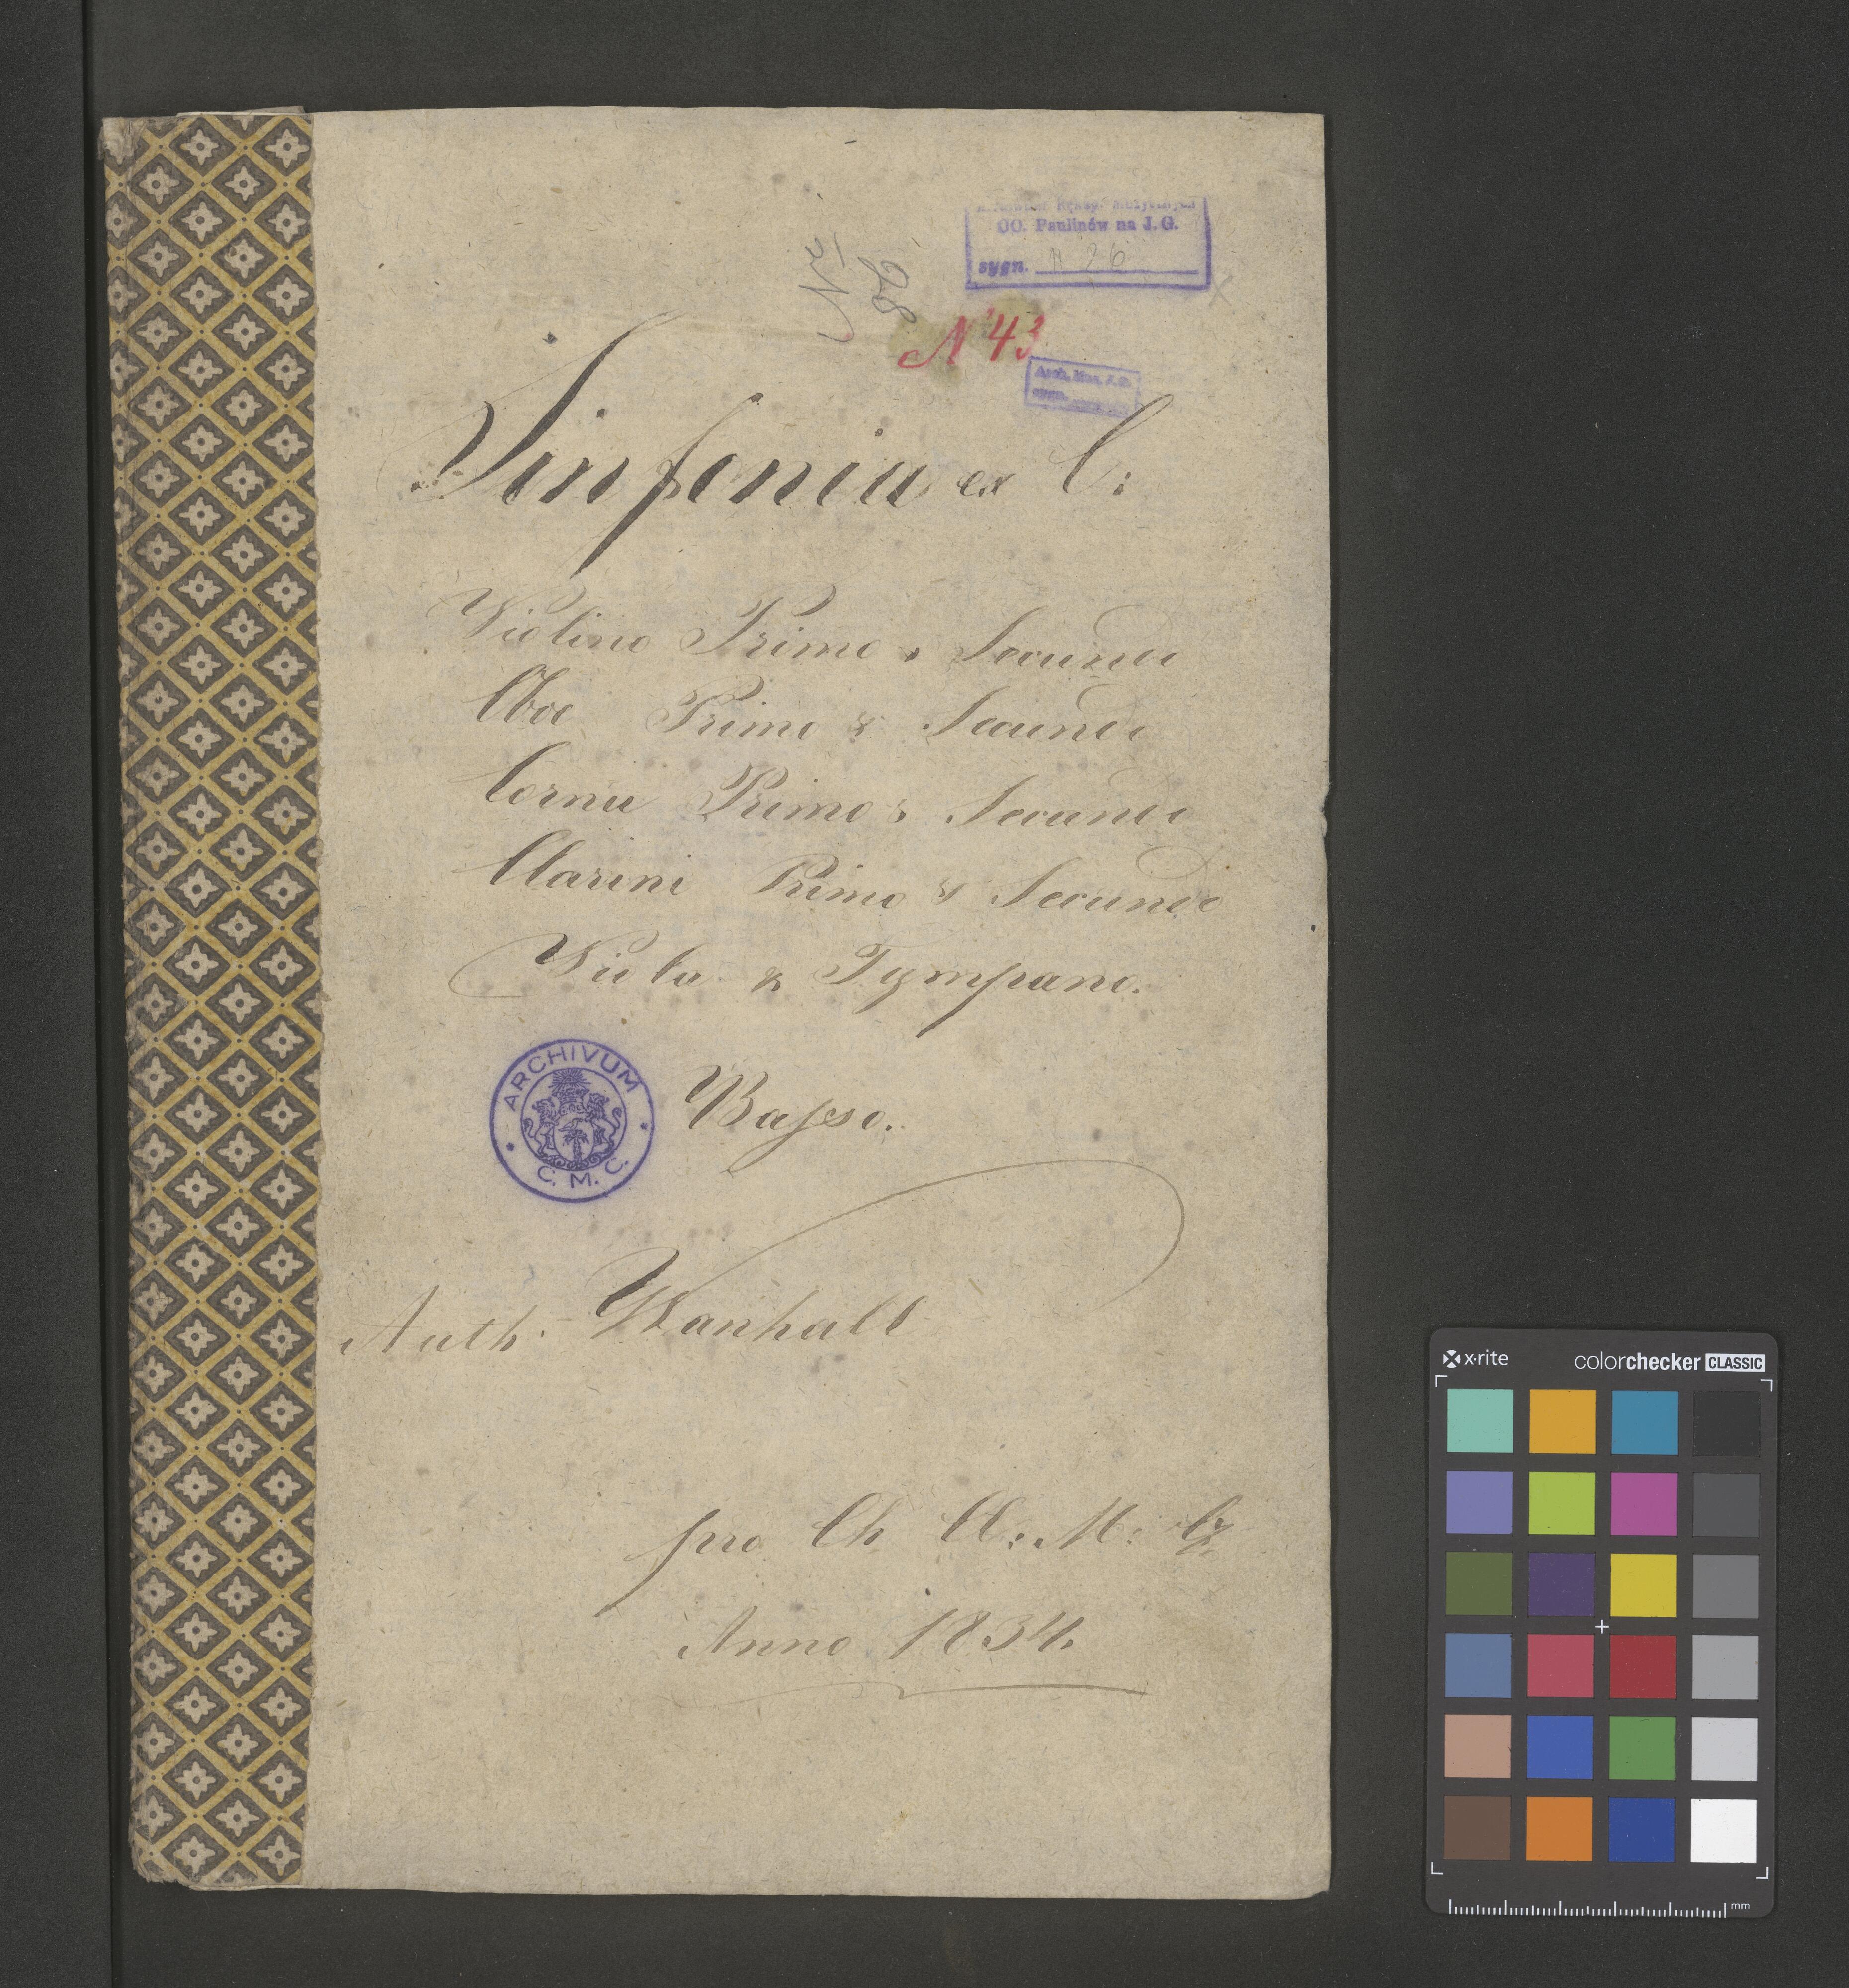 OO. Paulinów na J. G.
sygn. 26
№ 28
N 43
sygn.
Sinfonia ex C:
Violino Primo & Secundo
Oboe Primo & Secundo
Cornu Primo & Secundo
Clarini Primo & Secundo
Viola & Tympano.
ARCHIVUM
C. M. C.
Basso.
Auth: Wanhall
pro Ch Cl: M: Cz
Anno 1834.
x·rite
colorchecker CLASSIC
mm